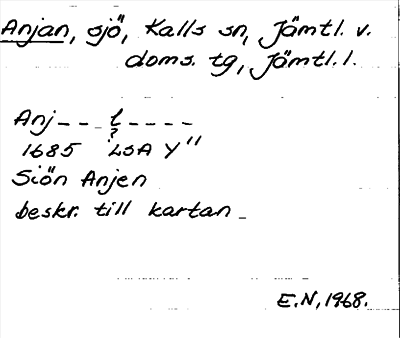 Anjan, sjö, Kalls sn, Jämtl. v.
doms. tg, Jämtl. l.
Anj--- l----
?
1685 LSA Y"
Siön Anjen
beskr. till kartan -
E.N, 1968.